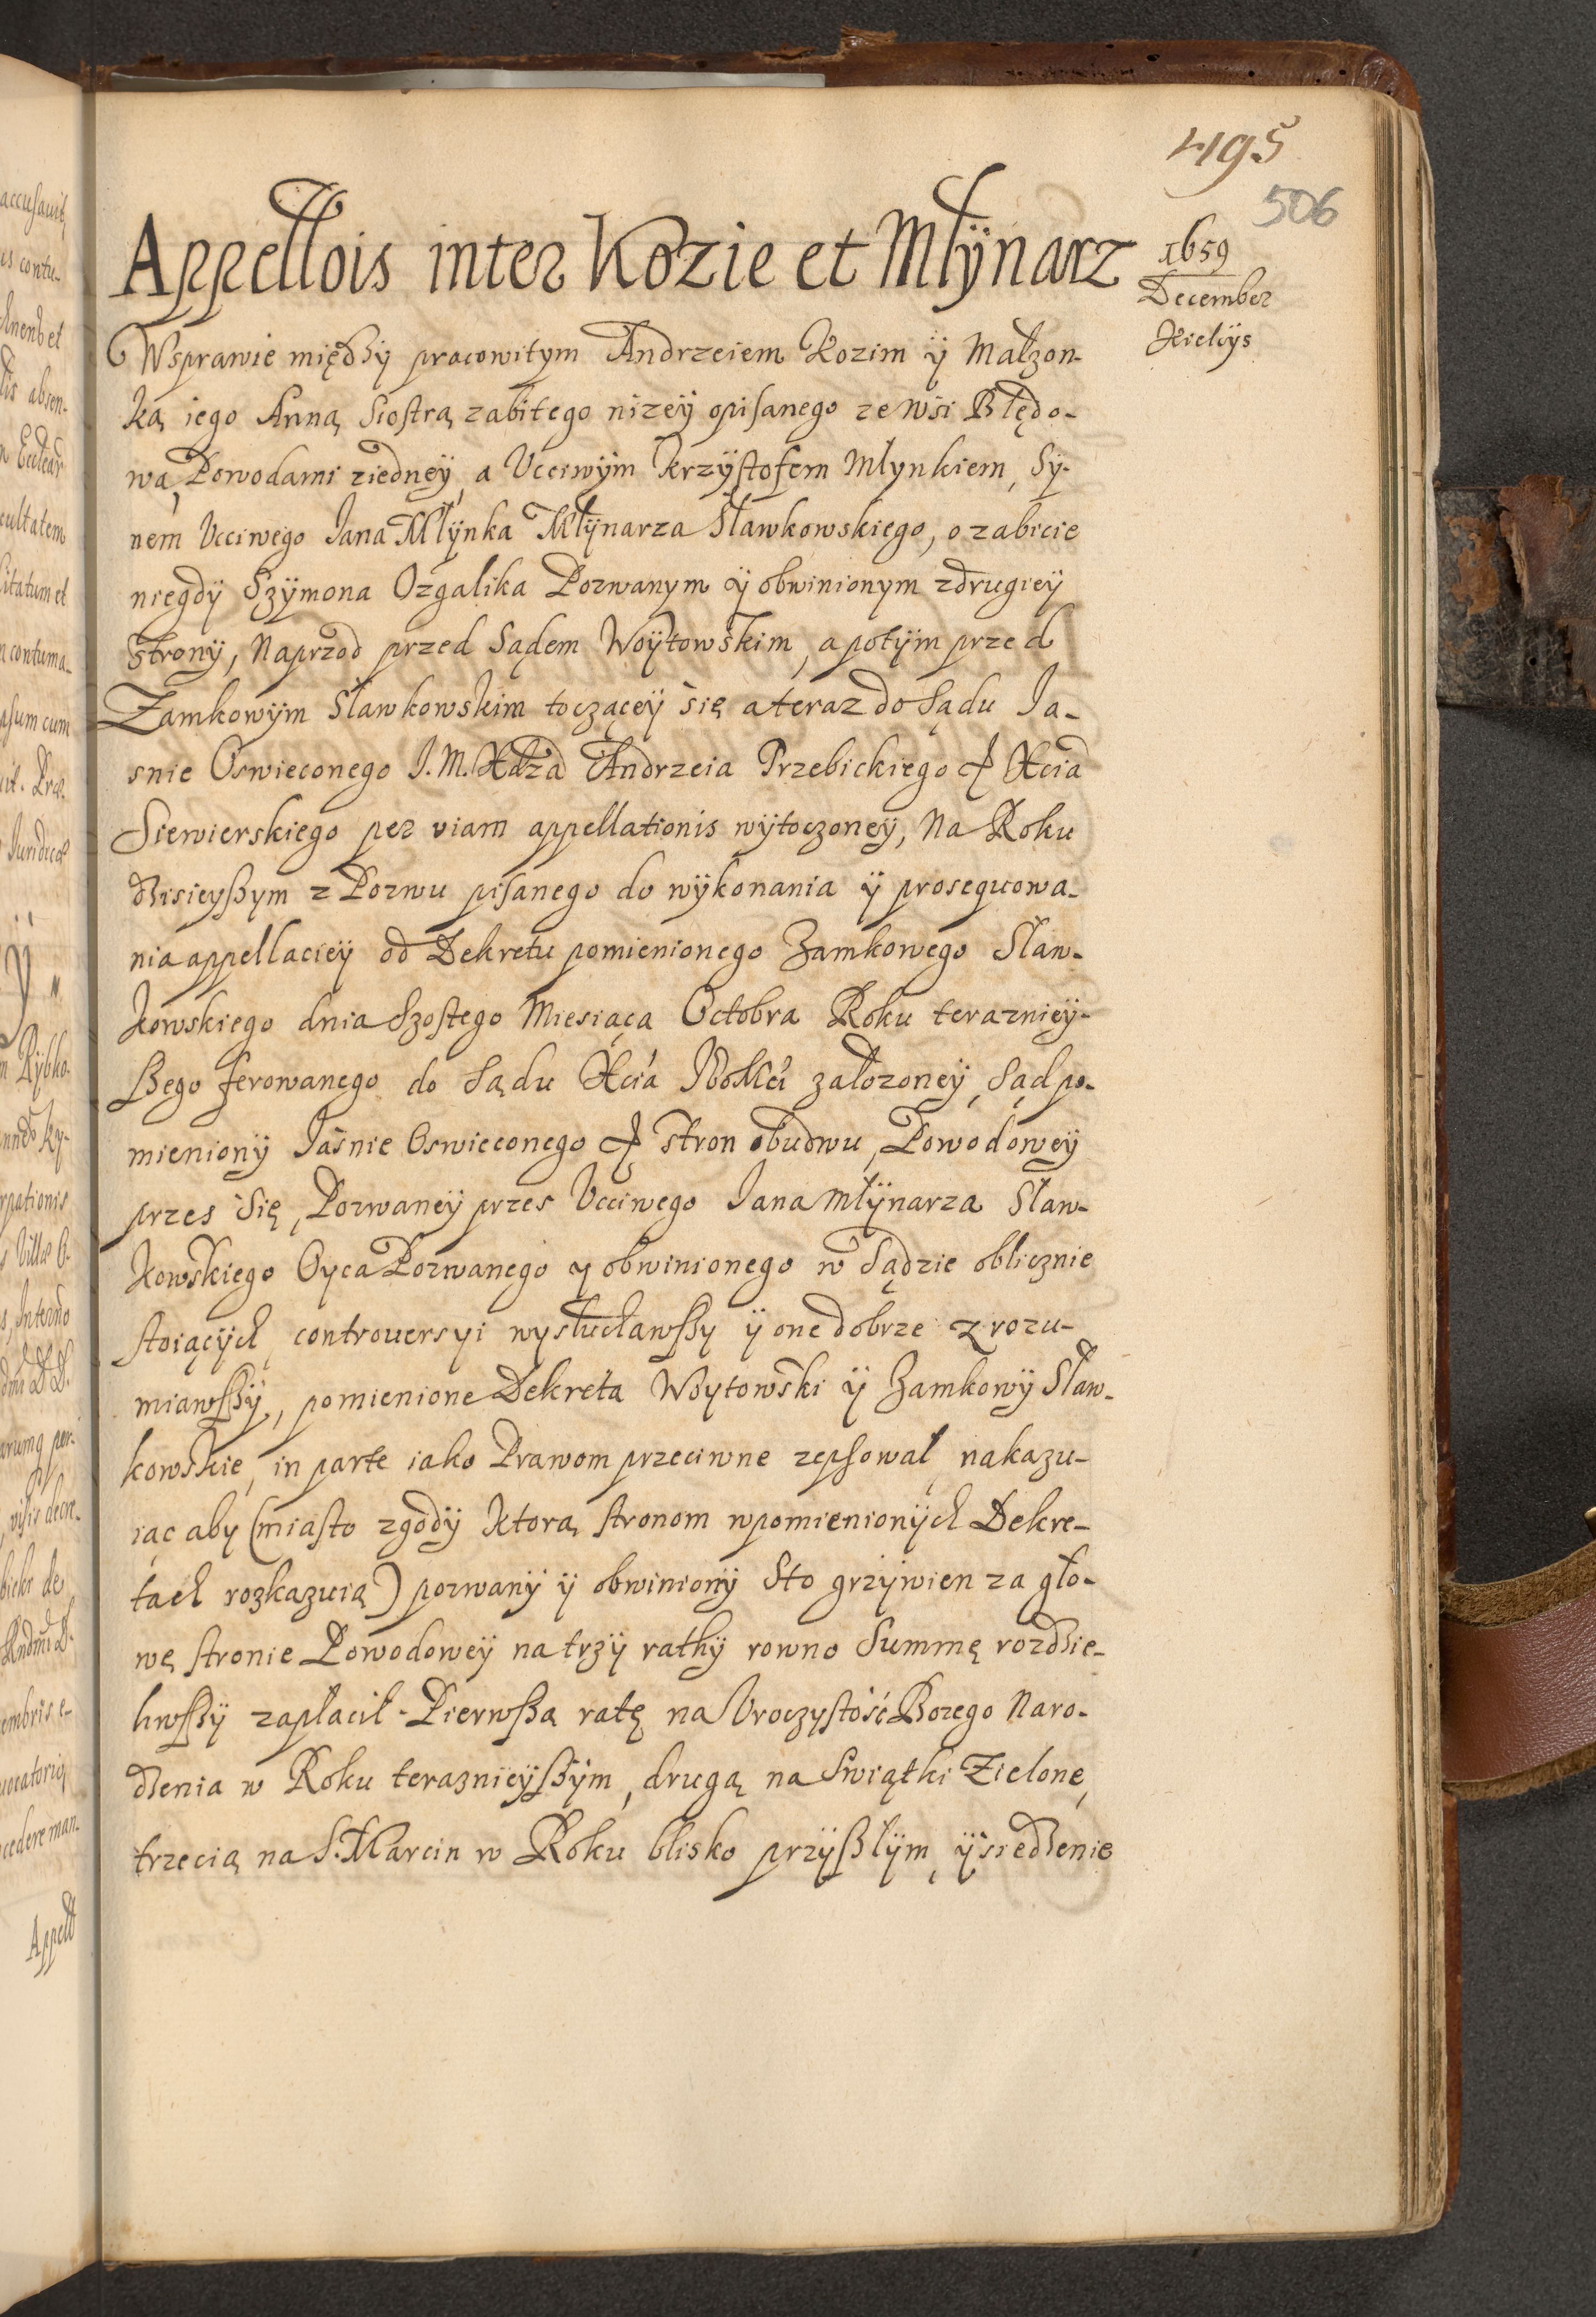 495
506
Appellõis inter Kozie et Młÿnarz
1659
December
Kielÿs
Wsprawie międzÿ pracowitym Andrzeiem Kozim ÿ Małżon-
ką iego Anną Siostrą zabitego nizeÿ opisanego ze wsi Błędo-
wa, Powodami ziedneÿ, a Vcciwÿm Krzÿstofem Młynkiem, Sÿ-
nem Vcciwego Jana Młÿnka Młÿnarza Sławkowskiego, o zabicie
niegdÿ Szÿmona Ozgalika Pozwanym ÿ obwinionym zdrugieÿ
Stronÿ, Naprzod przed Sądem Woÿtowskim, a potÿm przed
Zamkowÿm Sławkowskim toczącéÿ się a teraz do Sądu Ja-
snie Oswieconego J. M. Xdza Andrzeia Trzebickiego & Xcia
Siewierskiego per viam appellationis wÿtoczoneÿ, Na Roku
dzisieyßym z Pozwu pisanego do wÿkonania ÿ prosequowa-
nia appellacieÿ od Dekretu pomienionego Zamkowego Sław-
kowskiego dnia Szostego Miesiąca Octobra Roku teraznieÿ-
ßego ferowanego do Sądu Xcia założoneÿ, Sąd po-
mienionÿ Jaśnie Oswieconego & stron obudwu, Powodoweÿ
przes Się, Pozwaneÿ przes Vcciwego Jana Młÿnarza Sław-
kowskiego Oyca Pozwanego y obwinionego w Sądzie oblicznie
stoiącÿch controuersyi wysłuchawßy ÿ one dobrze zrozu-
miawßÿ, pomienione Dekreta Woytowski ÿ Zamkowÿ Sław-
kowskie, in parte iako Prawom przeciwne zepsował, nakazu-
iąc aby (miasto zgodÿ ktorą stronom wpomienionÿch Dekre-
tach rozkazuią) pozwanÿ ÿ obwinionÿ Sto grzywien za gło-
wę stronie Powodoweÿ na trzÿ rathÿ rowno Summę rozdzie-
liwßÿ zapłacił. Pierwßą ratę na Vroczystość Bozego Naro-
dzenia w Roku teraznieÿßÿm, drugą na Swiątki Zielone,
trzecią na S. Marcin w Roku blisko przÿßłÿm, ÿ siedzenie